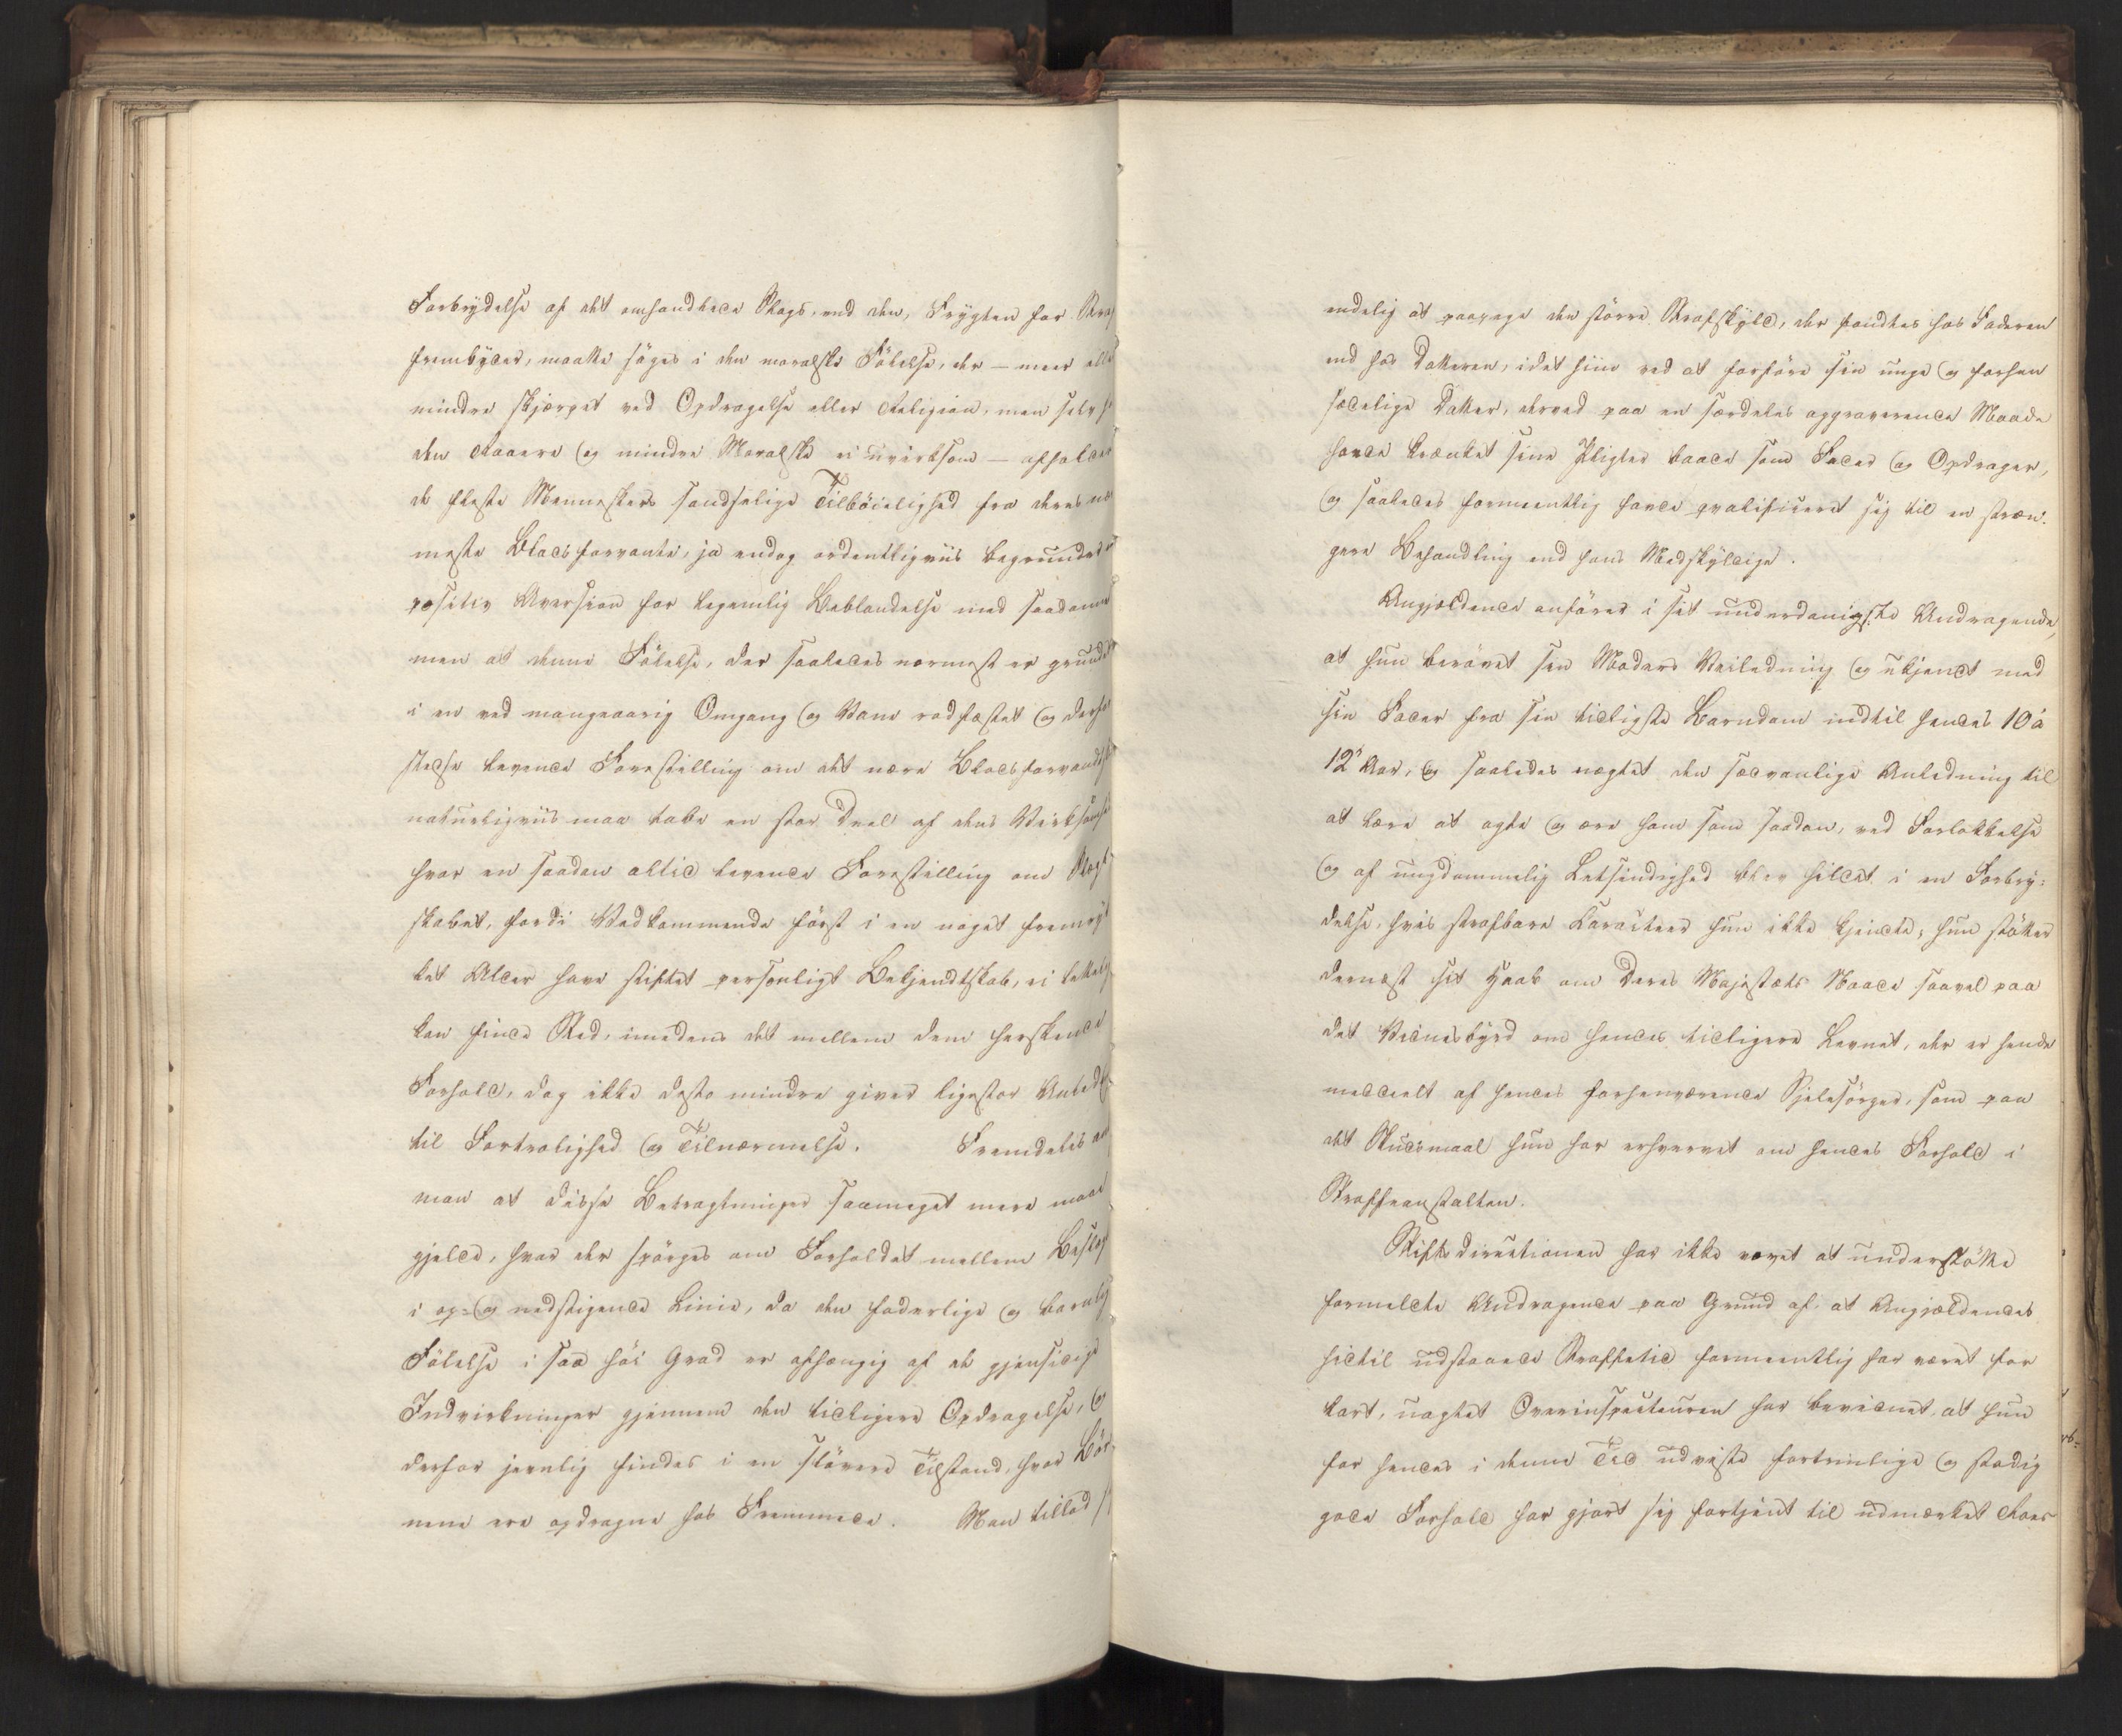 Forbrydelse af det omhandlede Slags, end den, Frygten for Straf
frembyder, maatte søges i den moralske Følelse, der — meer eller
mindre skjærpet ved Opdragelse eller Religion, men selv hos
den Raaere og mindre Moralske ei uvirksom — afholder
de fleste Menneskers sandselige Tilbøielighed fra deres nær-
meste Blodsforvante, ja endog ordentligviis begrunder en
positiv Aversion for legemlig Beblandelse med saadanne
men at denne Følelse, der saaledes nærmest er grundet
i en ved mangeaarig Omgang og Vane rodfæstet og derfor
stedse levende Forestilling om det nære Blodsforvandtskab
naturligviis maa tabe en stor Deel af dens Virksomhed
hvor en saadan altid levende Forestilling om Slægt-
skabet, fordi Vedkommende først i en noget fremryk-
ket Alder have stiftet personligt Bekjendtskab, ei lettelig
kan finde Sted, imedens det mellem dem herskende
Forhold, dog ikke desto mindre giver ligestor Anledning
til Fortrolighed og Tilnærmelse. Fremdeles
man at disse Betragtninger saameget mere maae
gjelde, hvor der spørges om Forholdet mellem Besl
i op- og nedstigende Linie, da den faderlige og barnlige
Følelse i saa høi Grad er afhængig af de gjensidige
Indvirkninger gjennem den tidligere Opdragelse, og
derfor jevnlig findes i en sløvere Tilstand, hvor Bør-
nene ere opdragne hos Fremmede. Man tillod sig
endelig at paapege den større Strafskyld, der fandtes hos Faderen
end hos Datteren, idet hiin ved at forføre sin unge og forhen
sædelige Datter, derved paa en særdeles aggraverende Maade
havde krænket sine Pligter baade som Fader og Opdrager,
og saaledes formeentlig havde qvalificeret sig til en stræn-
gere Behandling end hans Medskyldige.
Angjældende anfører i sit underdanigste Andragende,
at hun berøvet sin Moders Veiledning og ukjendt med
sin Fader fra sin tidligste Barndom indtil hendes 10 à
12te Aar, og saaledes nægtet den sædvanlige Anledning til
at lære at agte og ære ham som saadan, ved Forlokkelse
og af ungdommelig Letsindighed blev hildet i en Forbry-
delse, hvis strafbare Karakteer hun ikke kjendte; hun støtter
dernæst sit Haab om Deres Majestæts Naade saavel paa
det Vidnesbyrd om hendes tidligere Levnet, der er hende
meddeelt af hendes forhenværende Sjelesørger, som paa
det Skudsmaal hun har erhvervet om hendes Forhold i
Straffeanstalten.
Stiftsdirectionen har ikke vovet at understøtte
formeldte Andragende paa Grund af at Angjældendes
hidtil udstaaede Straffetid formeentlig har været for
kort, uagtet Overinspecteuren har bevidnet, at hun
for hendes i denne Tid udviste fortrinlige og stadig
gode Forhold har gjort sig fortjent til udmærket Roes